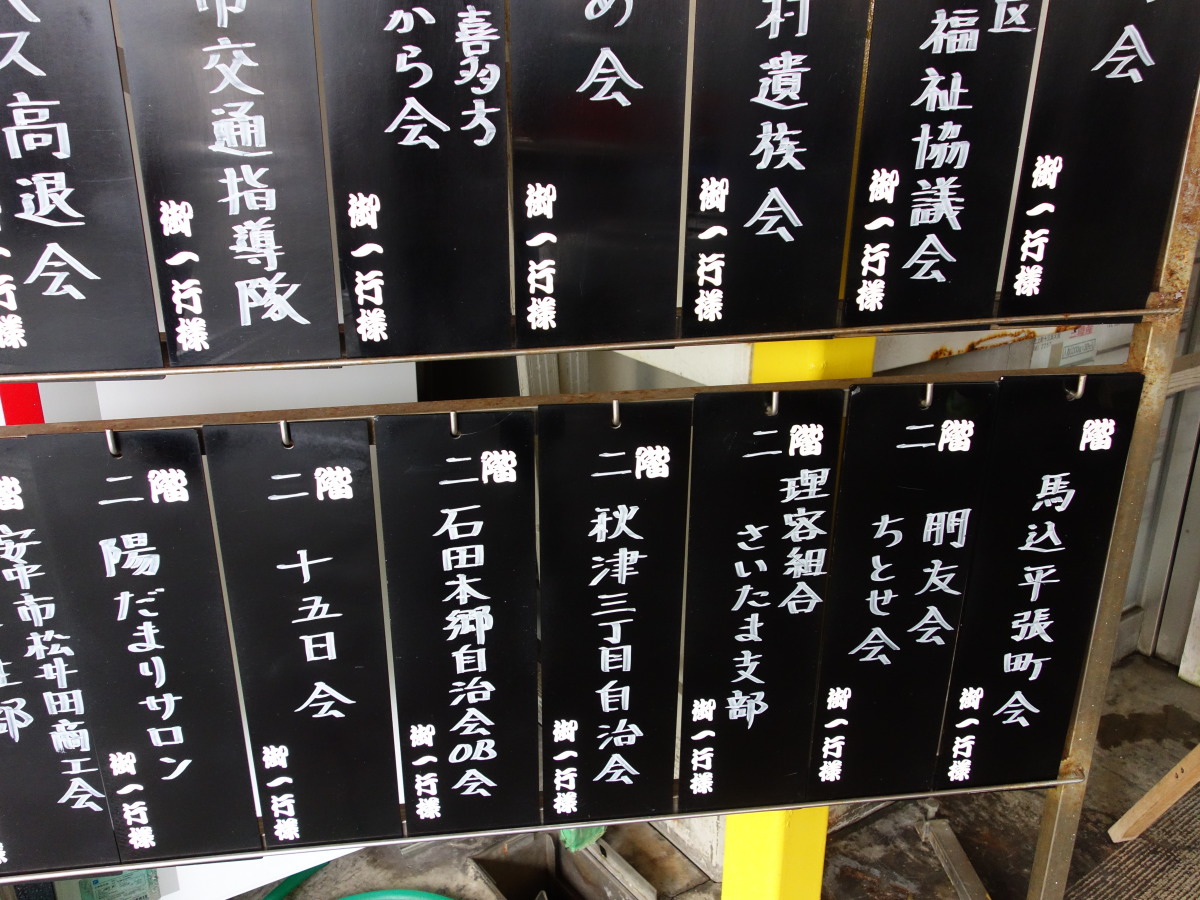 会
御一行様
区
福祉協議会
御一行様
村遺族会
御一行様
め会
御一行様
喜多方
から会
御一行様
市交通指導隊
御一行様
ス高退会
行様
階
馬込平張町会
御一行様
二階
朋友会
ちとせ会
御一行様
二階
理容組合
さいたま支部
御一行様
二階
秋津三丁目自治会
御一行様
二階
石田本郷自治会OB会
御一行様
二階
十五日会
御一行様
二階
陽だまりサロン
御一行様
階
安中市松井田商工会
部